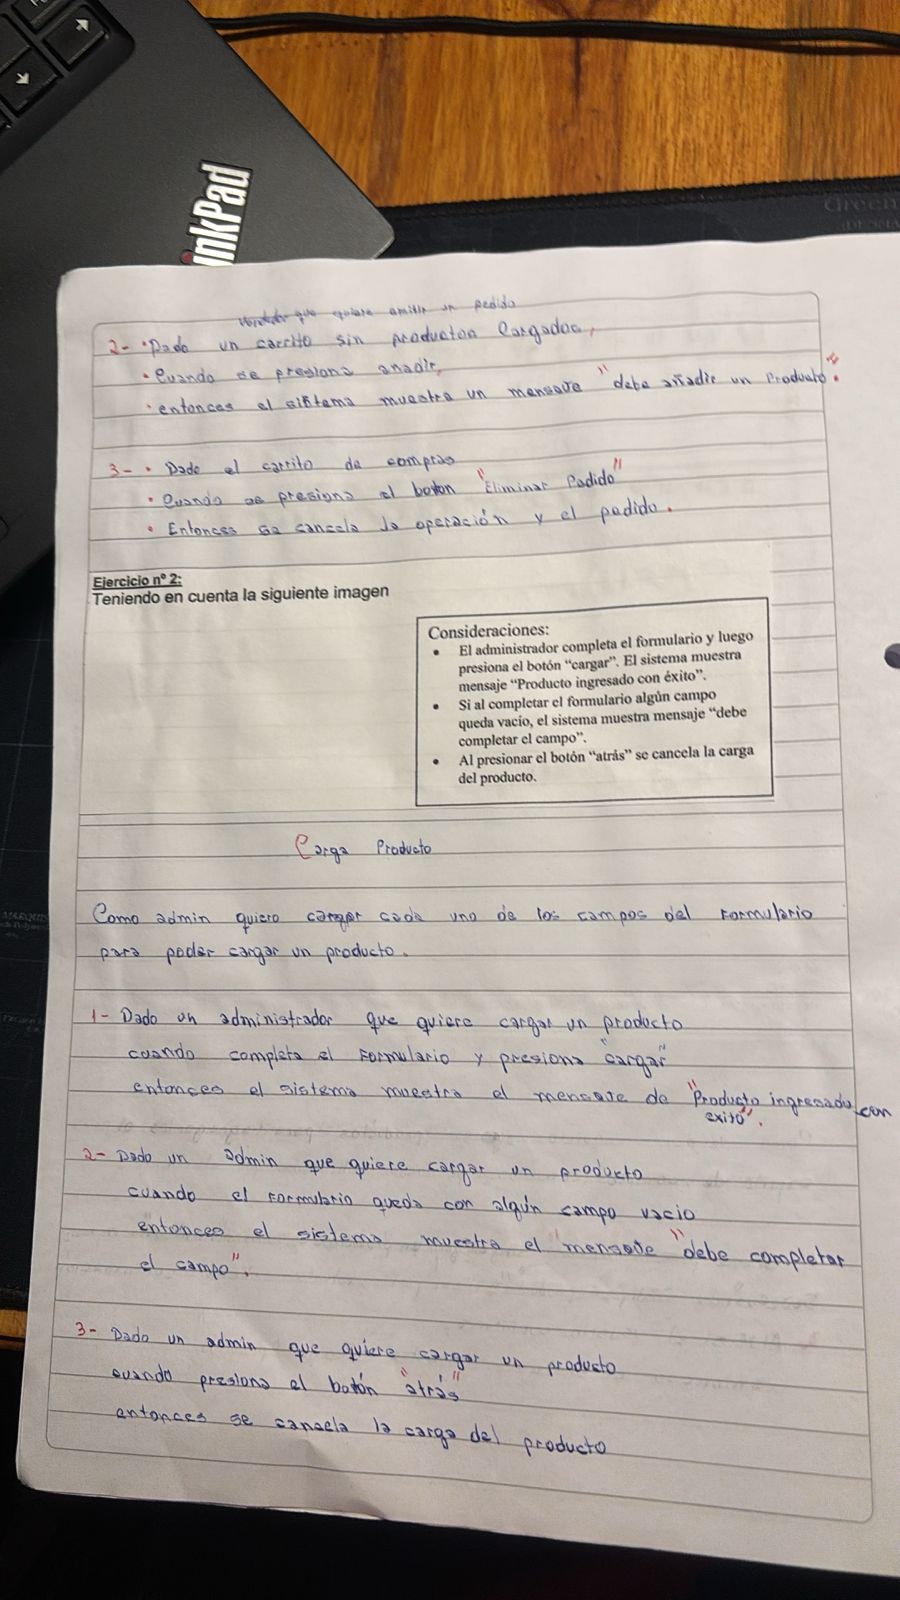 inkPad
Green
vendedor que quiere emitir un pedido
2- • Dado un carrito sin productos Cargados,
• Cuando se presiona anadir,
• entonces el sistema muestra un mensaje "debe añadir un Producto".
3- • Dado el carrito de compras
• Cuando se presiona el boton "Eliminar Pedido"
• Entonces se cancela la operación y el pedido.
Ejercicio nº 2:
Teniendo en cuenta la siguiente imagen
Consideraciones:
• El administrador completa el formulario y luego
presiona el botón “cargar”. El sistema muestra
mensaje “Producto ingresado con éxito”.
• Si al completar el formulario algún campo
queda vacío, el sistema muestra mensaje “debe
completar el campo”.
• Al presionar el botón “atrás” se cancela la carga
del producto.
Carga Producto
Como admin quiero cargar cada uno de los campos del formulario
para poder cargar un producto.
1- Dado un administrador que quiere cargar un producto
cuando completa el formulario y presiona "cargar"
entonces el sistema muestra el mensaje de "Producto ingresado con
exito".
2- Dado un admin que quiere cargar un producto
cuando el formulario queda con algún campo vacio
entonces el sistema muestra el mensaje "debe completar
el campo".
3- Dado un admin que quiere cargar un producto
cuando presiona el botón "atrás"
entonces se cancela la carga del producto